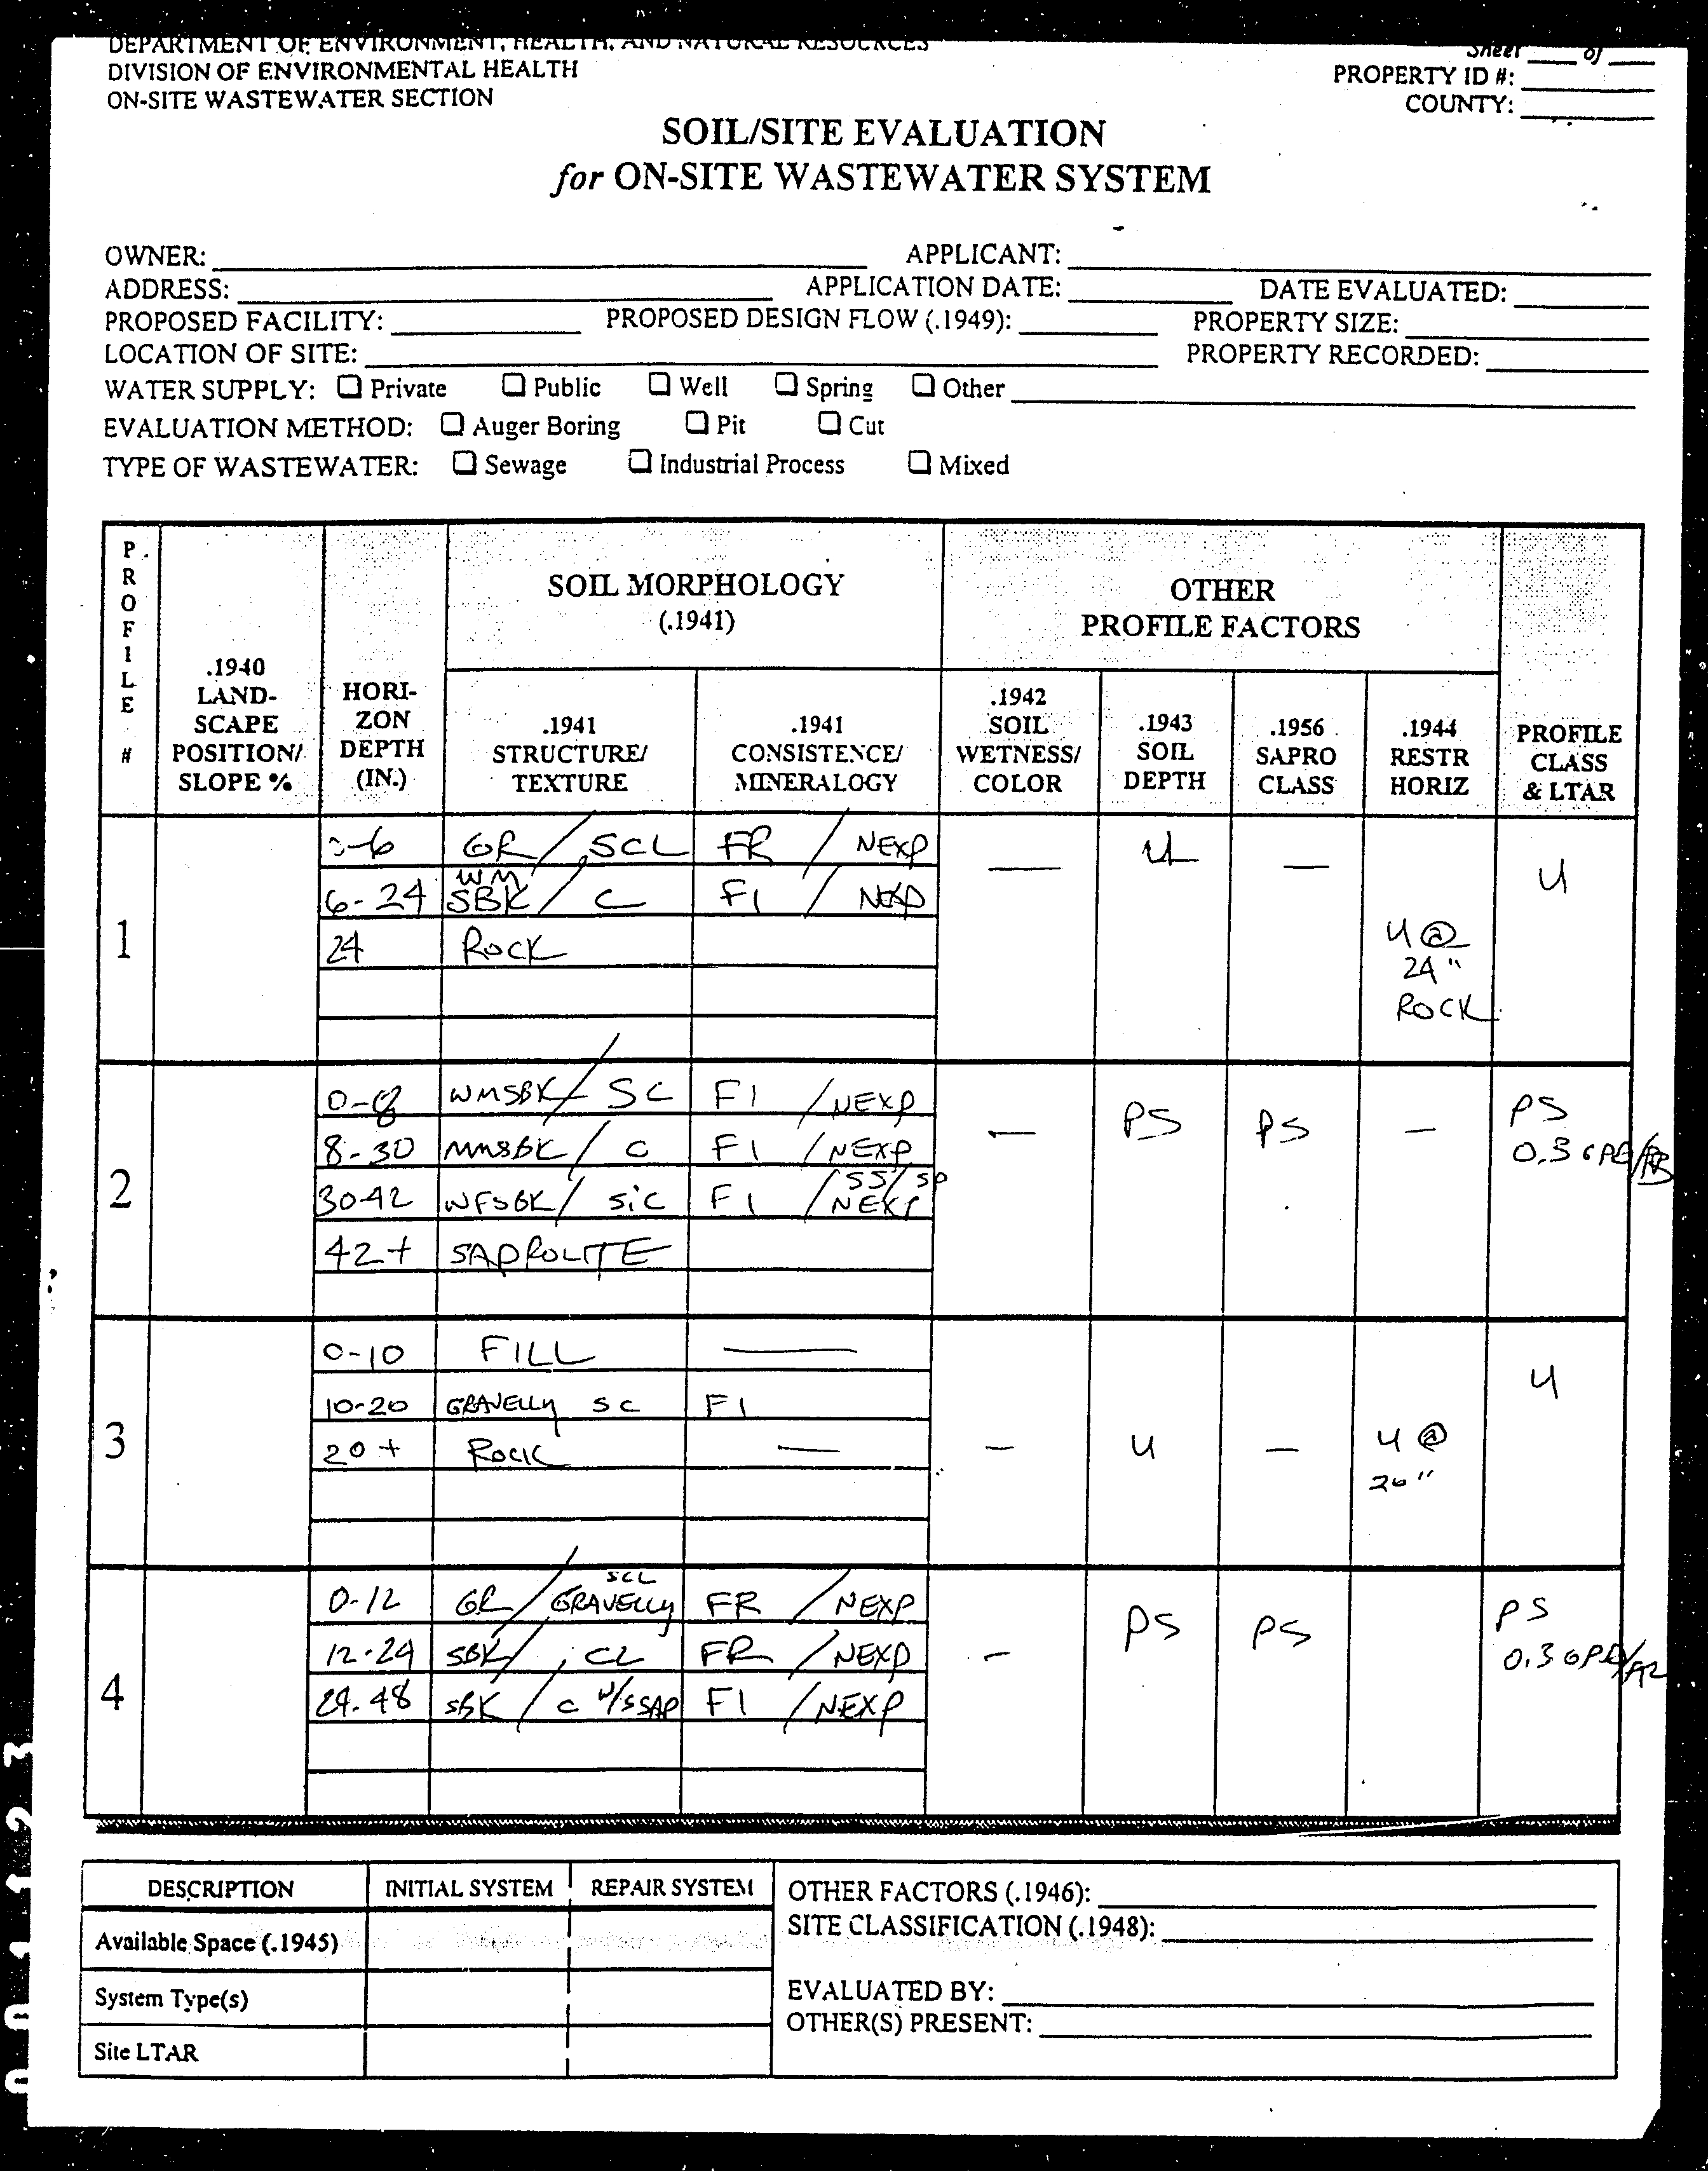 DEPARTMENT OF ENVIRONMENT, HEALTH, AND NATURAL RESOURCES
Sheet ____ of ____
DIVISION OF ENVIRONMENTAL HEALTH
PROPERTY ID #:
ON-SITE WASTEWATER SECTION
COUNTY:
SOIL/SITE EVALUATION
for ON-SITE WASTEWATER SYSTEM
OWNER: APPLICANT:
ADDRESS: APPLICATION DATE: DATE EVALUATED:
PROPOSED FACILITY: PROPOSED DESIGN FLOW (.1949): PROPERTY SIZE:
LOCATION OF SITE: PROPERTY RECORDED:
WATER SUPPLY: ☐ Private ☐ Public ☐ Well ☐ Spring ☐ Other
EVALUATION METHOD: ☐ Auger Boring ☐ Pit ☐ Cut
TYPE OF WASTEWATER: ☐ Sewage ☐ Industrial Process ☐ Mixed
PROFILE #
.1940 LAND-SCAPE POSITION/ SLOPE %
HORI-ZON DEPTH (IN.)
SOIL MORPHOLOGY (.1941)
.1941 STRUCTURE/ TEXTURE
.1941 CONSISTENCE/ MINERALOGY
OTHER PROFILE FACTORS
.1942 SOIL WETNESS/ COLOR
.1943 SOIL DEPTH
.1956 SAPRO CLASS
.1944 RESTR HORIZ
PROFILE CLASS & LTAR
1
0-6 GR / SCL FR / NEXP
6-24 WM SBK / C FI / NEXP
24 ROCK
— U — U @ 24" ROCK U
2
0-8 WMSBK / SC FI / NEXP
8-30 MMSBK / C FI / NEXP
30-42 WFSBK / SiC FI / SS/SP NEXP
42+ SAPROLITE
— PS PS — PS
0.3 GPD/
3
0-10 FILL —
10-20 GRAVELLY SC FI
20+ ROCK —
— U — U @ 20" U
4
0-12 GR / SCL GRAVELLY FR / NEXP
12-24 SBK / CL FR / NEXP
24-48 SBK / C W/SSAP FI / NEXP
— PS PS PS
0.3 GPD/
DESCRIPTION INITIAL SYSTEM REPAIR SYSTEM
Available Space (.1945)
System Type(s)
Site LTAR
OTHER FACTORS (.1946):
SITE CLASSIFICATION (.1948):
EVALUATED BY:
OTHER(S) PRESENT: